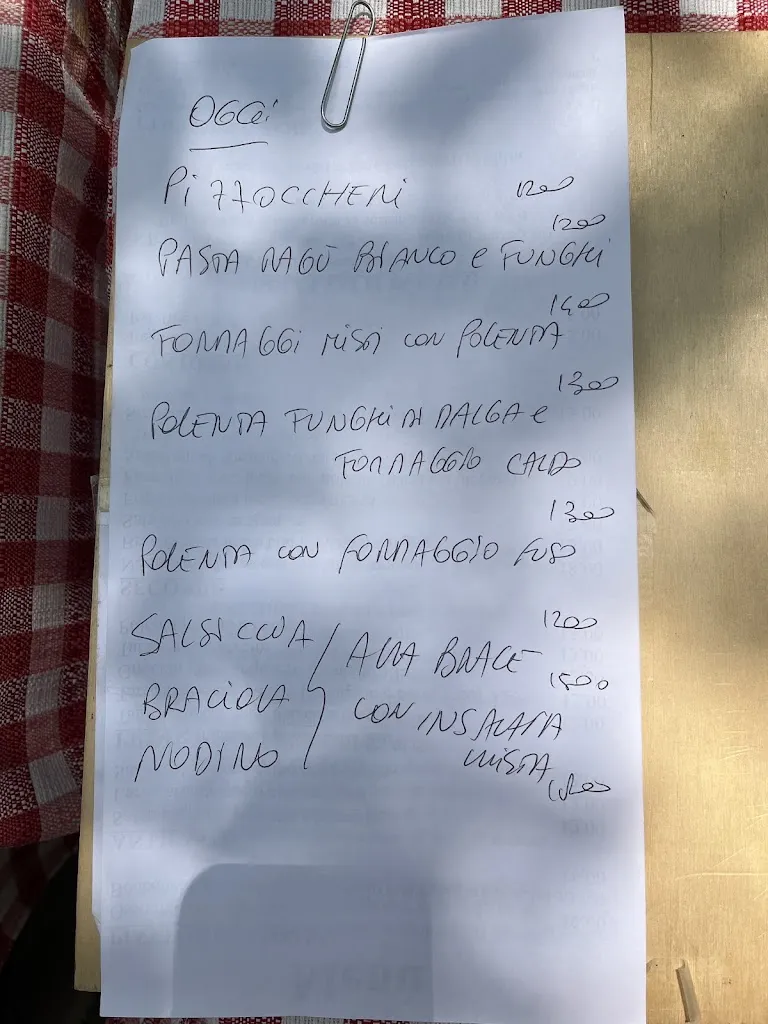 OGGi
PiZZOCCHERI 1200
1200
PASTA RAGÙ BIANCO e FUNGHi
1400
FORMAGGi MiSTi CON POLENTA
1300
POLENTA FUNGHi DI MALGA e
FORMAGGIO CALDO
1300
POLENTA CON FORMAGGIO FUSO
1200
SALSICCIA ALLA BRACE
1500
BRACiOLA CON INSALATA
NODINO MISTA